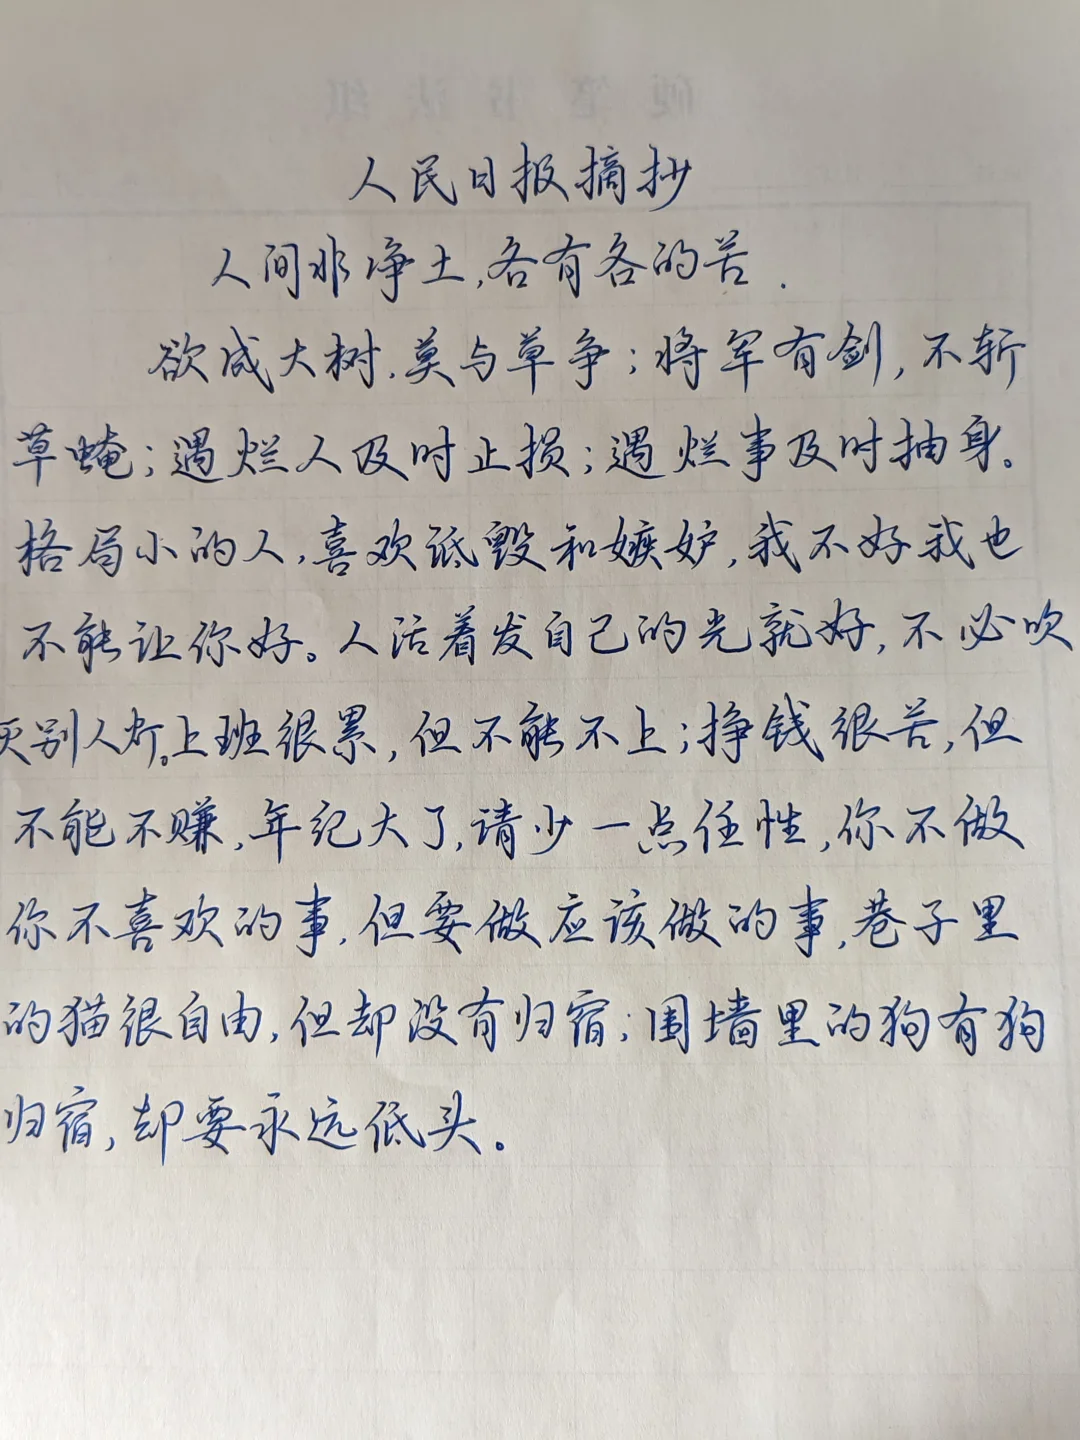 人民日报摘抄
人间非净土,各有各的苦.
欲成大树,莫与草争;将军有剑,不斩
草蜱;遇烂人及时止损;遇烂事及时抽身。
格局小的人,喜欢诋毁和嫉妒,我不好我也
不能让你好。人活着发自己的光就好,不必吹
灭别人灯。上班很累,但不能不上;挣钱很苦,但
不能不赚,年纪大了,请少一点任性,你不做
你不喜欢的事,但要做应该做的事,巷子里
的猫很自由,但却没有归宿;围墙里的狗有狗
归宿,却要永远低头。